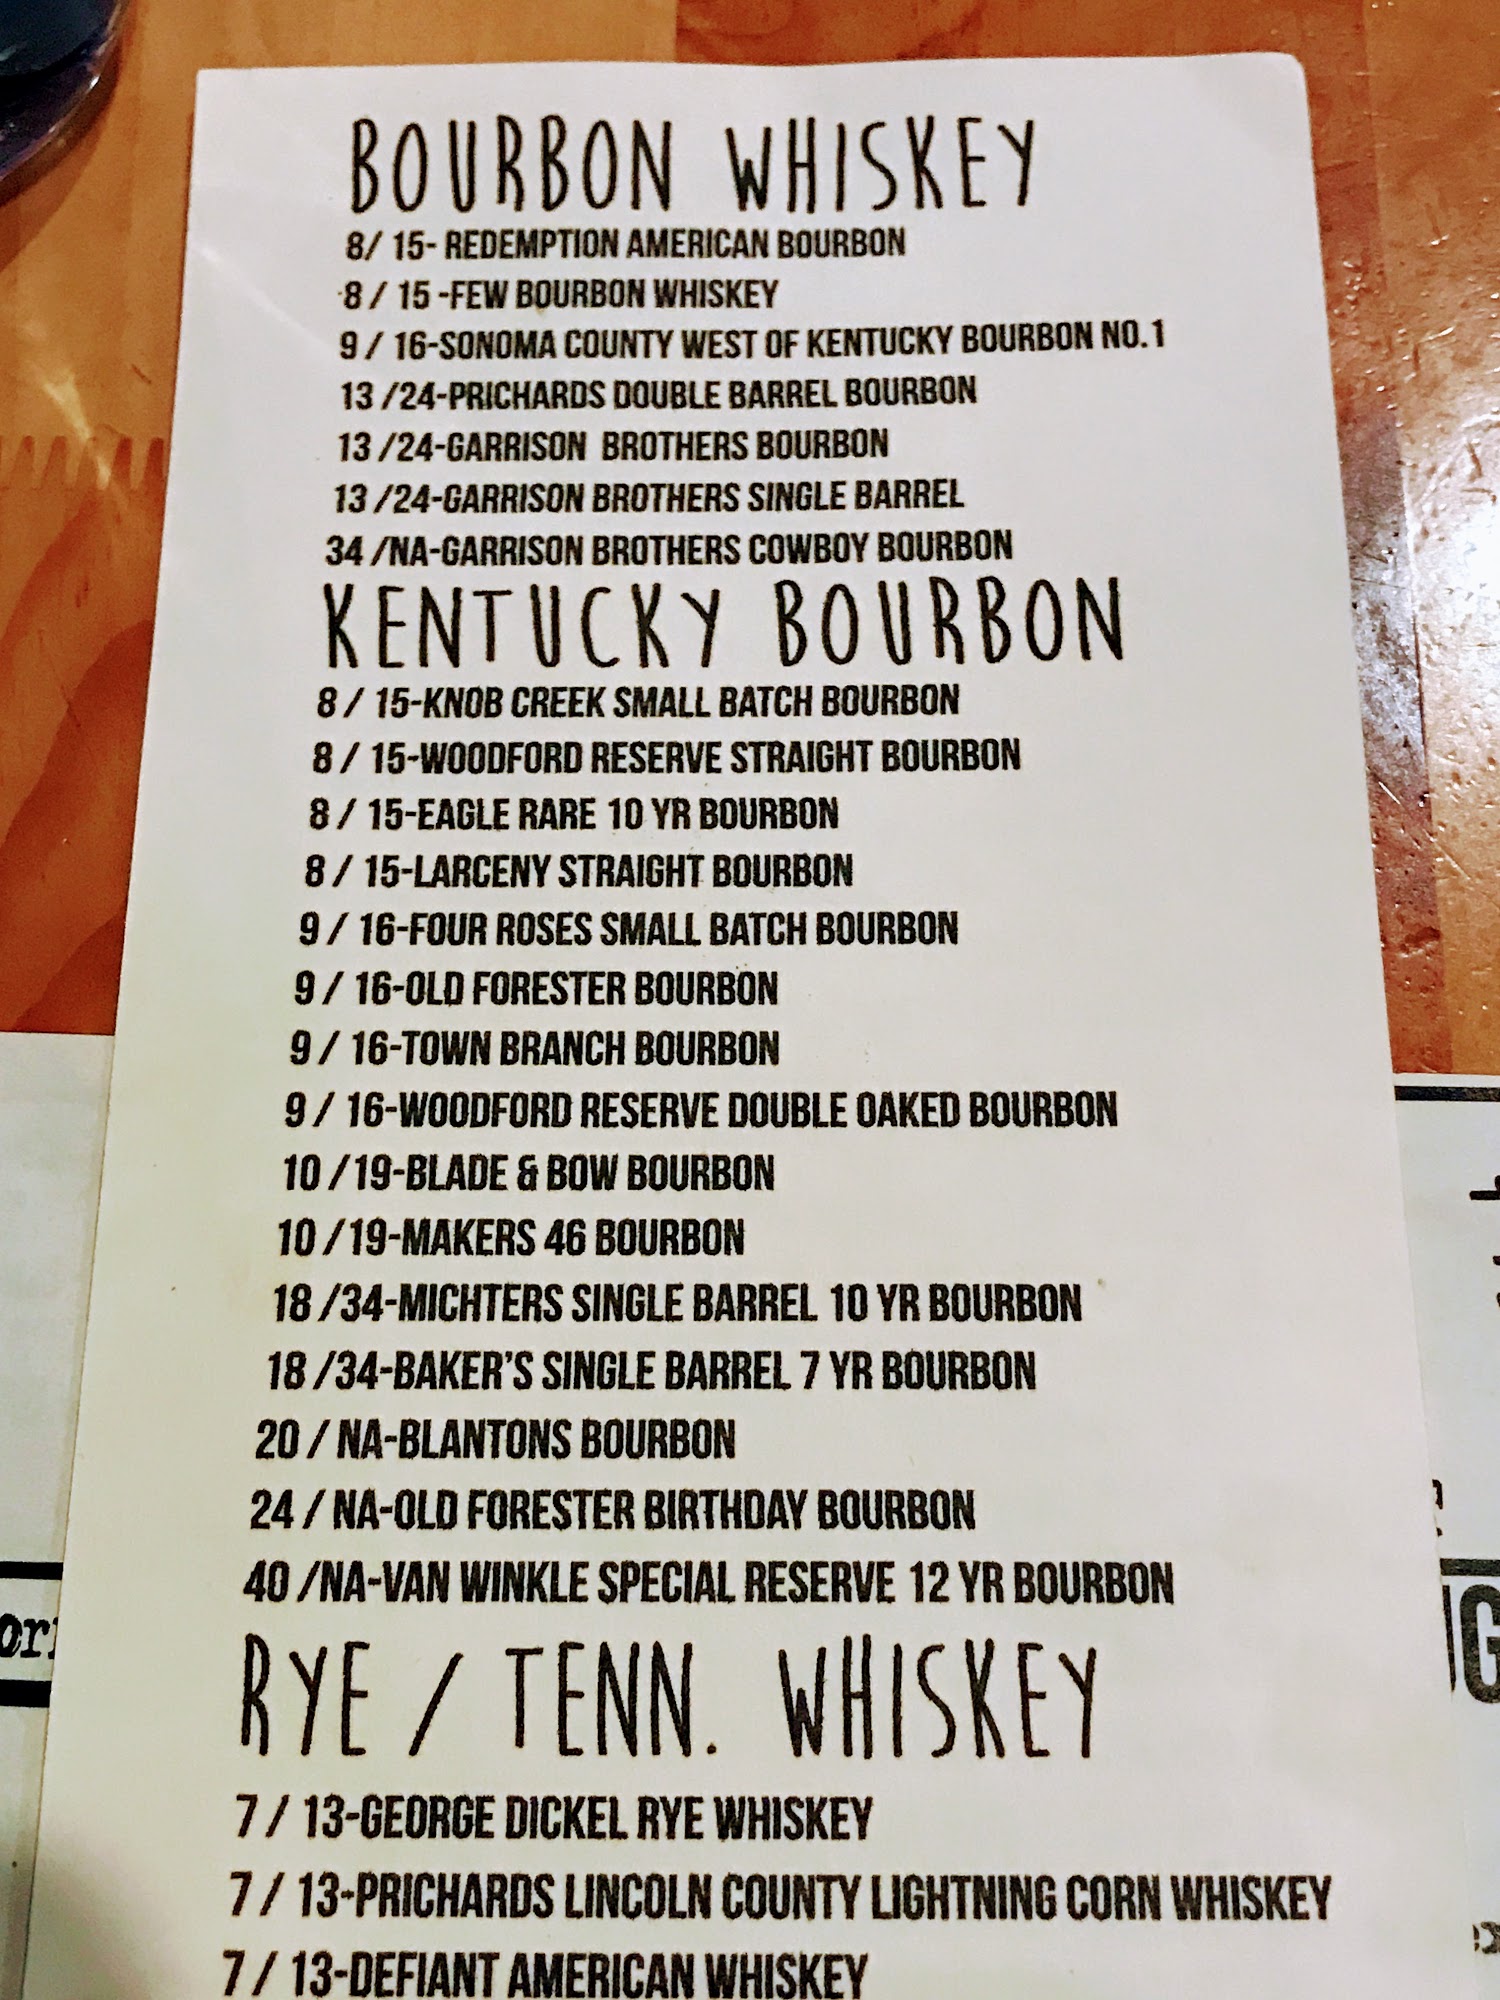 BOURBON WHISKEY
8/ 15- REDEMPTION AMERICAN BOURBON
8 / 15 -FEW BOURBON WHISKEY
9 / 16-SONOMA COUNTY WEST OF KENTUCKY BOURBON NO.1
13 /24-PRICHARDS DOUBLE BARREL BOURBON
13 /24-GARRISON BROTHERS BOURBON
13 /24-GARRISON BROTHERS SINGLE BARREL
34 /NA-GARRISON BROTHERS COWBOY BOURBON
KENTUCKY BOURBON
8 / 15-KNOB CREEK SMALL BATCH BOURBON
8 / 15-WOODFORD RESERVE STRAIGHT BOURBON
8 / 15-EAGLE RARE 10 YR BOURBON
8 / 15-LARCENY STRAIGHT BOURBON
9 / 16-FOUR ROSES SMALL BATCH BOURBON
9 / 16-OLD FORESTER BOURBON
9 / 16-TOWN BRANCH BOURBON
9 / 16-WOODFORD RESERVE DOUBLE OAKED BOURBON
10 /19-BLADE & BOW BOURBON
10 /19-MAKERS 46 BOURBON
18 /34-MICHTERS SINGLE BARREL 10 YR BOURBON
18 /34-BAKER'S SINGLE BARREL 7 YR BOURBON
20 / NA-BLANTONS BOURBON
24 / NA-OLD FORESTER BIRTHDAY BOURBON
40 /NA-VAN WINKLE SPECIAL RESERVE 12 YR BOURBON
RYE / TENN. WHISKEY
7 / 13-GEORGE DICKEL RYE WHISKEY
7 / 13-PRICHARDS LINCOLN COUNTY LIGHTNING CORN WHISKEY
7 / 13-DEFIANT AMERICAN WHISKEY